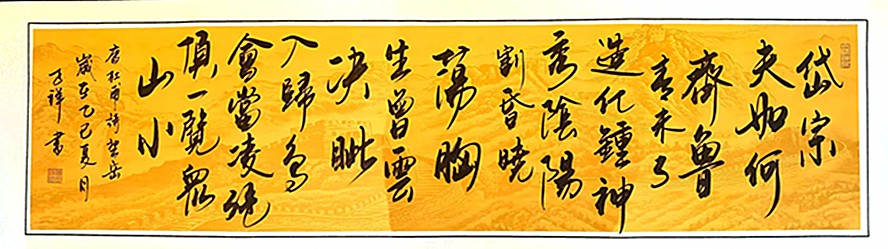 岱宗
夫如何
齊魯
青未了
造化鍾神
秀陰陽
割昏曉
蕩胸
生曾雲
決眦
入歸鳥
會當凌絕
頂一覽眾
山小
唐杜甫詩望岳
歲在乙巳夏月
祥書